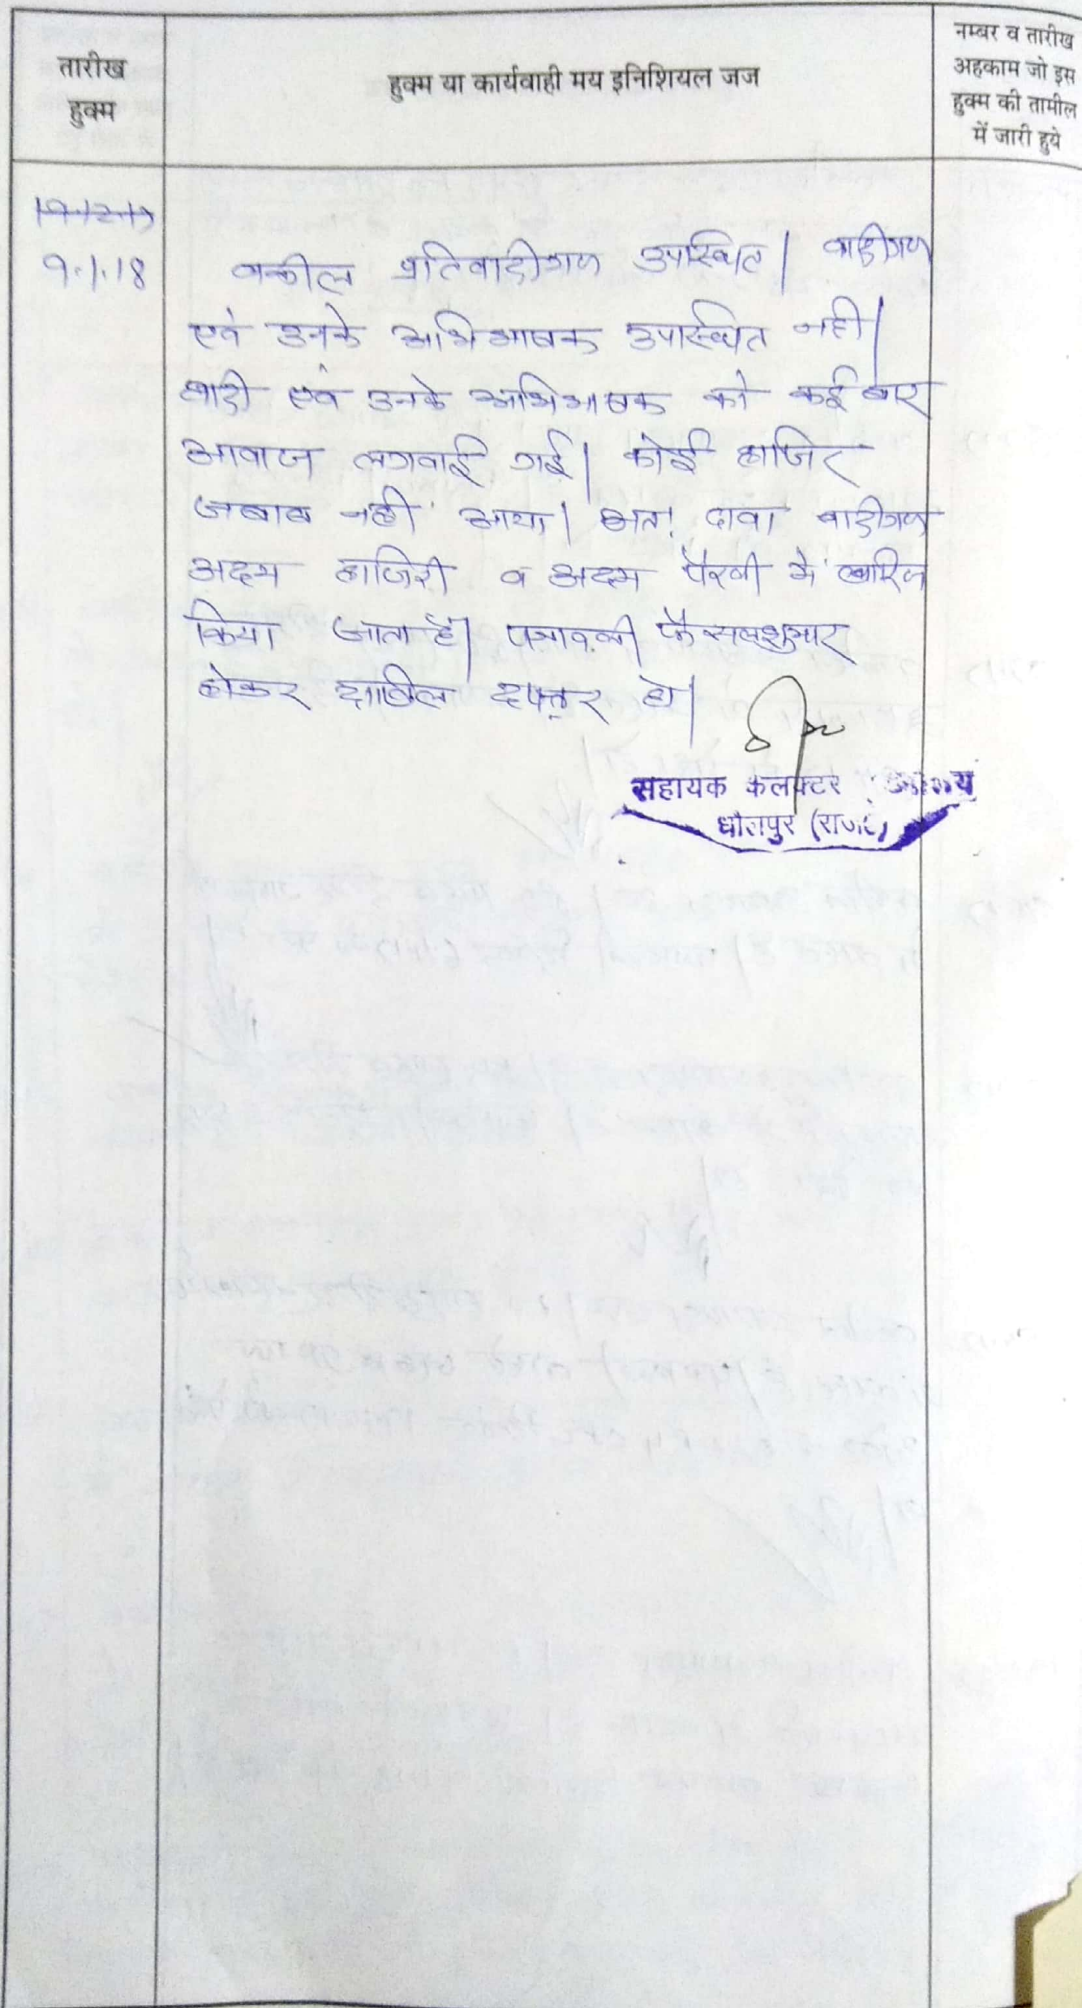 तारीख
हुक्म
हुक्म या कार्यवाही मय इनिशियल जज
नम्बर व तारीख
अहकाम जो इस
हुक्म की तामील
में जारी हुये
9.1.18
वकील प्रतिवादीगण उपस्थित। वादीगण
एवं उनके अभिभाषक उपस्थित नही।
वादी एवं उनके अभिभाषक को कई बार
आवाज लगवाई गई। कोई हाजिर
जबाब नही आया। अतः दावा वादीगण
अदम हाजिरी व अदम पैरवी में खारिज
किया जाता है। पत्रावली फैसलशुमार
होकर दाखिल दफ्तर हो।
सहायक कलक्टर
धौलपुर (राज०)